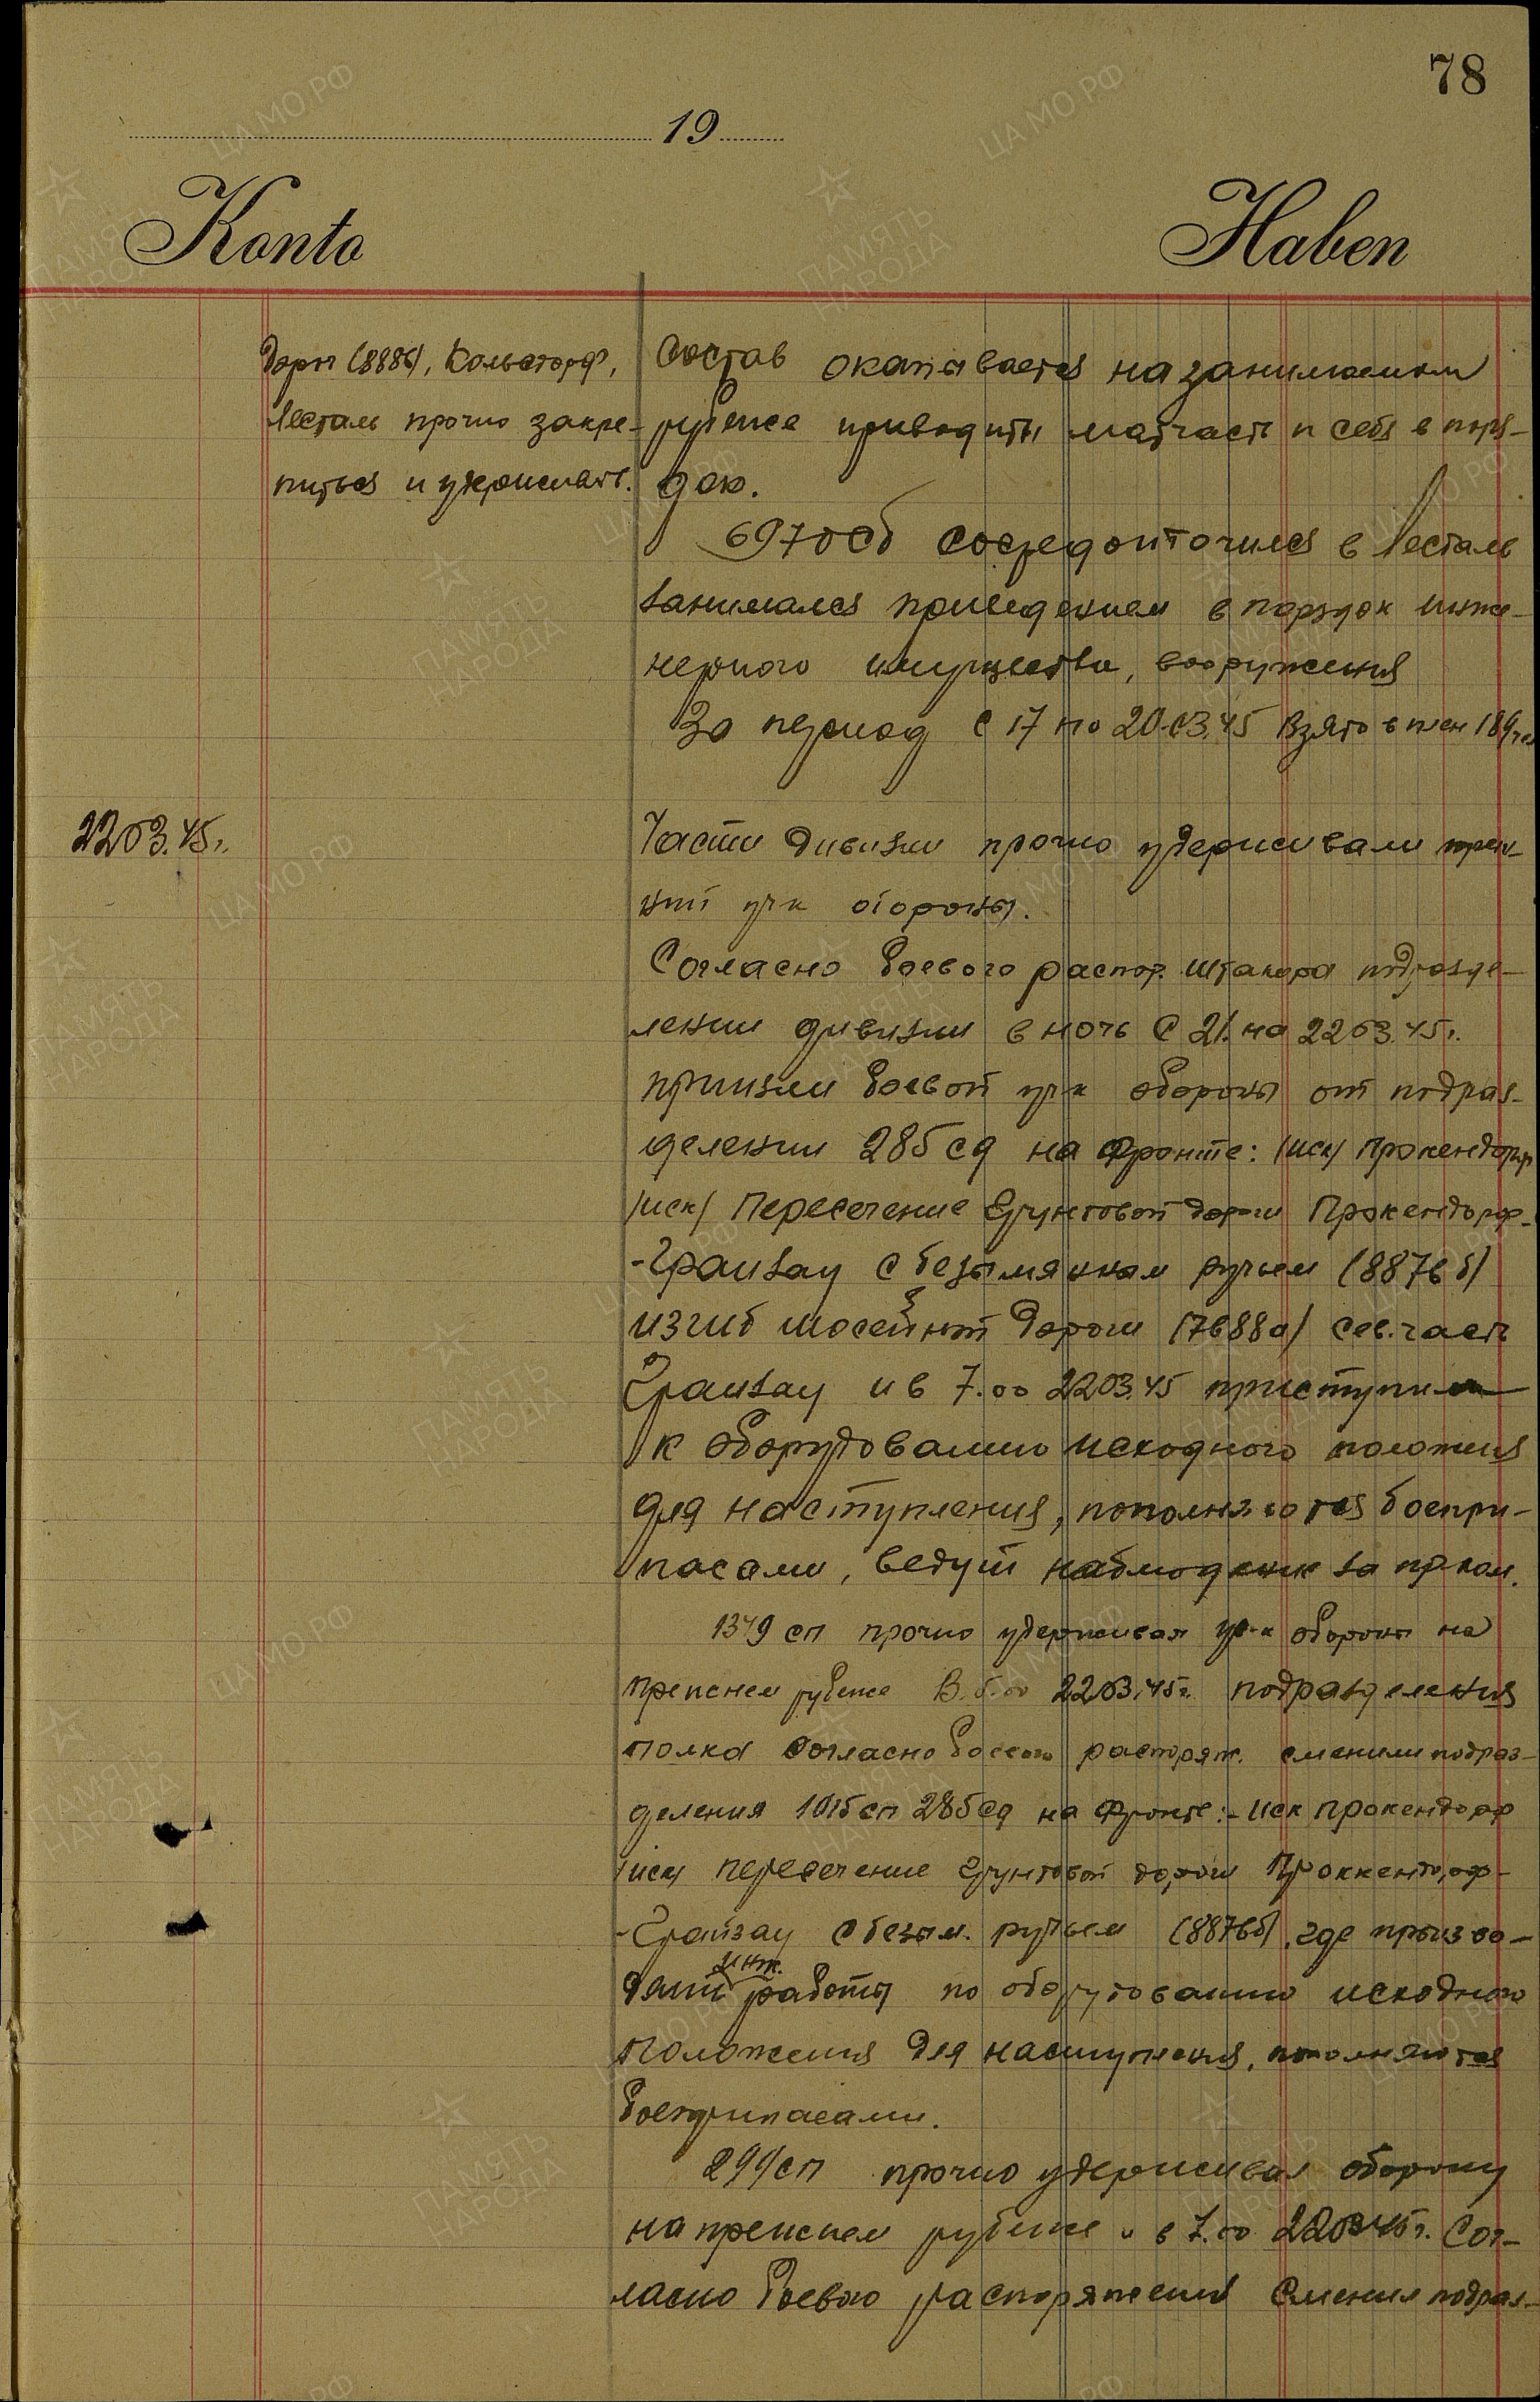 78
19
Konto Haben
дорп (8886), Кольсторф,
Лесталь прочно закре-
питься и удерживать.
Состав окапывается на занимаемом
рубеже приводить матчасть и себя в поря-
док.
697 осб сосредоточился в Лесталь
занимался приведением в порядок инже-
нерного имущества, вооружения
За период с 17 по 20.03.45 взято в плен 189 чел
22 03.45г.
Части дивизии прочно удерживали преж-
ний уч-к обороны.
Согласно боевого распор. штакора подразде-
лении дивизии в ночь с 21 на 22 03.45г.
приняли боевой уч-к обороны от подраз-
делении 285 сд на фронте: /иск/ Прокендорф
/иск/ пересечение грунтовой дороги Прокендорф-
-Грайзау с безымянным ручьем (8876б)
изгиб шоссейной дороги (7688а) сев. часть
Грайзау и в 7.00 22 03.45 приступили
к оборудованию исходного положения
для наступления, пополняются боепри-
пасами, ведут наблюдение за пр-ком.
1349 сп прочно удерживая уч-к обороны на
прежнем рубеже в 6.00 22 03.45г. подразделения
полка согласно боевого распоряж. сменили подраз-
деления 1015 сп 285 сд на фронте:- иск Прокендорф
/иск/ пересечение грунтовой дороги Проккендорф-
-Грайзау с безым. ручьем (8876б), где произво-
дят инж. работы по оборудованию исходного
положения для наступления, пополняются
боеприпасами.
299 сп прочно удерживал оборону
на прежнем рубеже и в 7.00 22 03 45г. сог-
ласно боевого распоряжения сменил подраз-